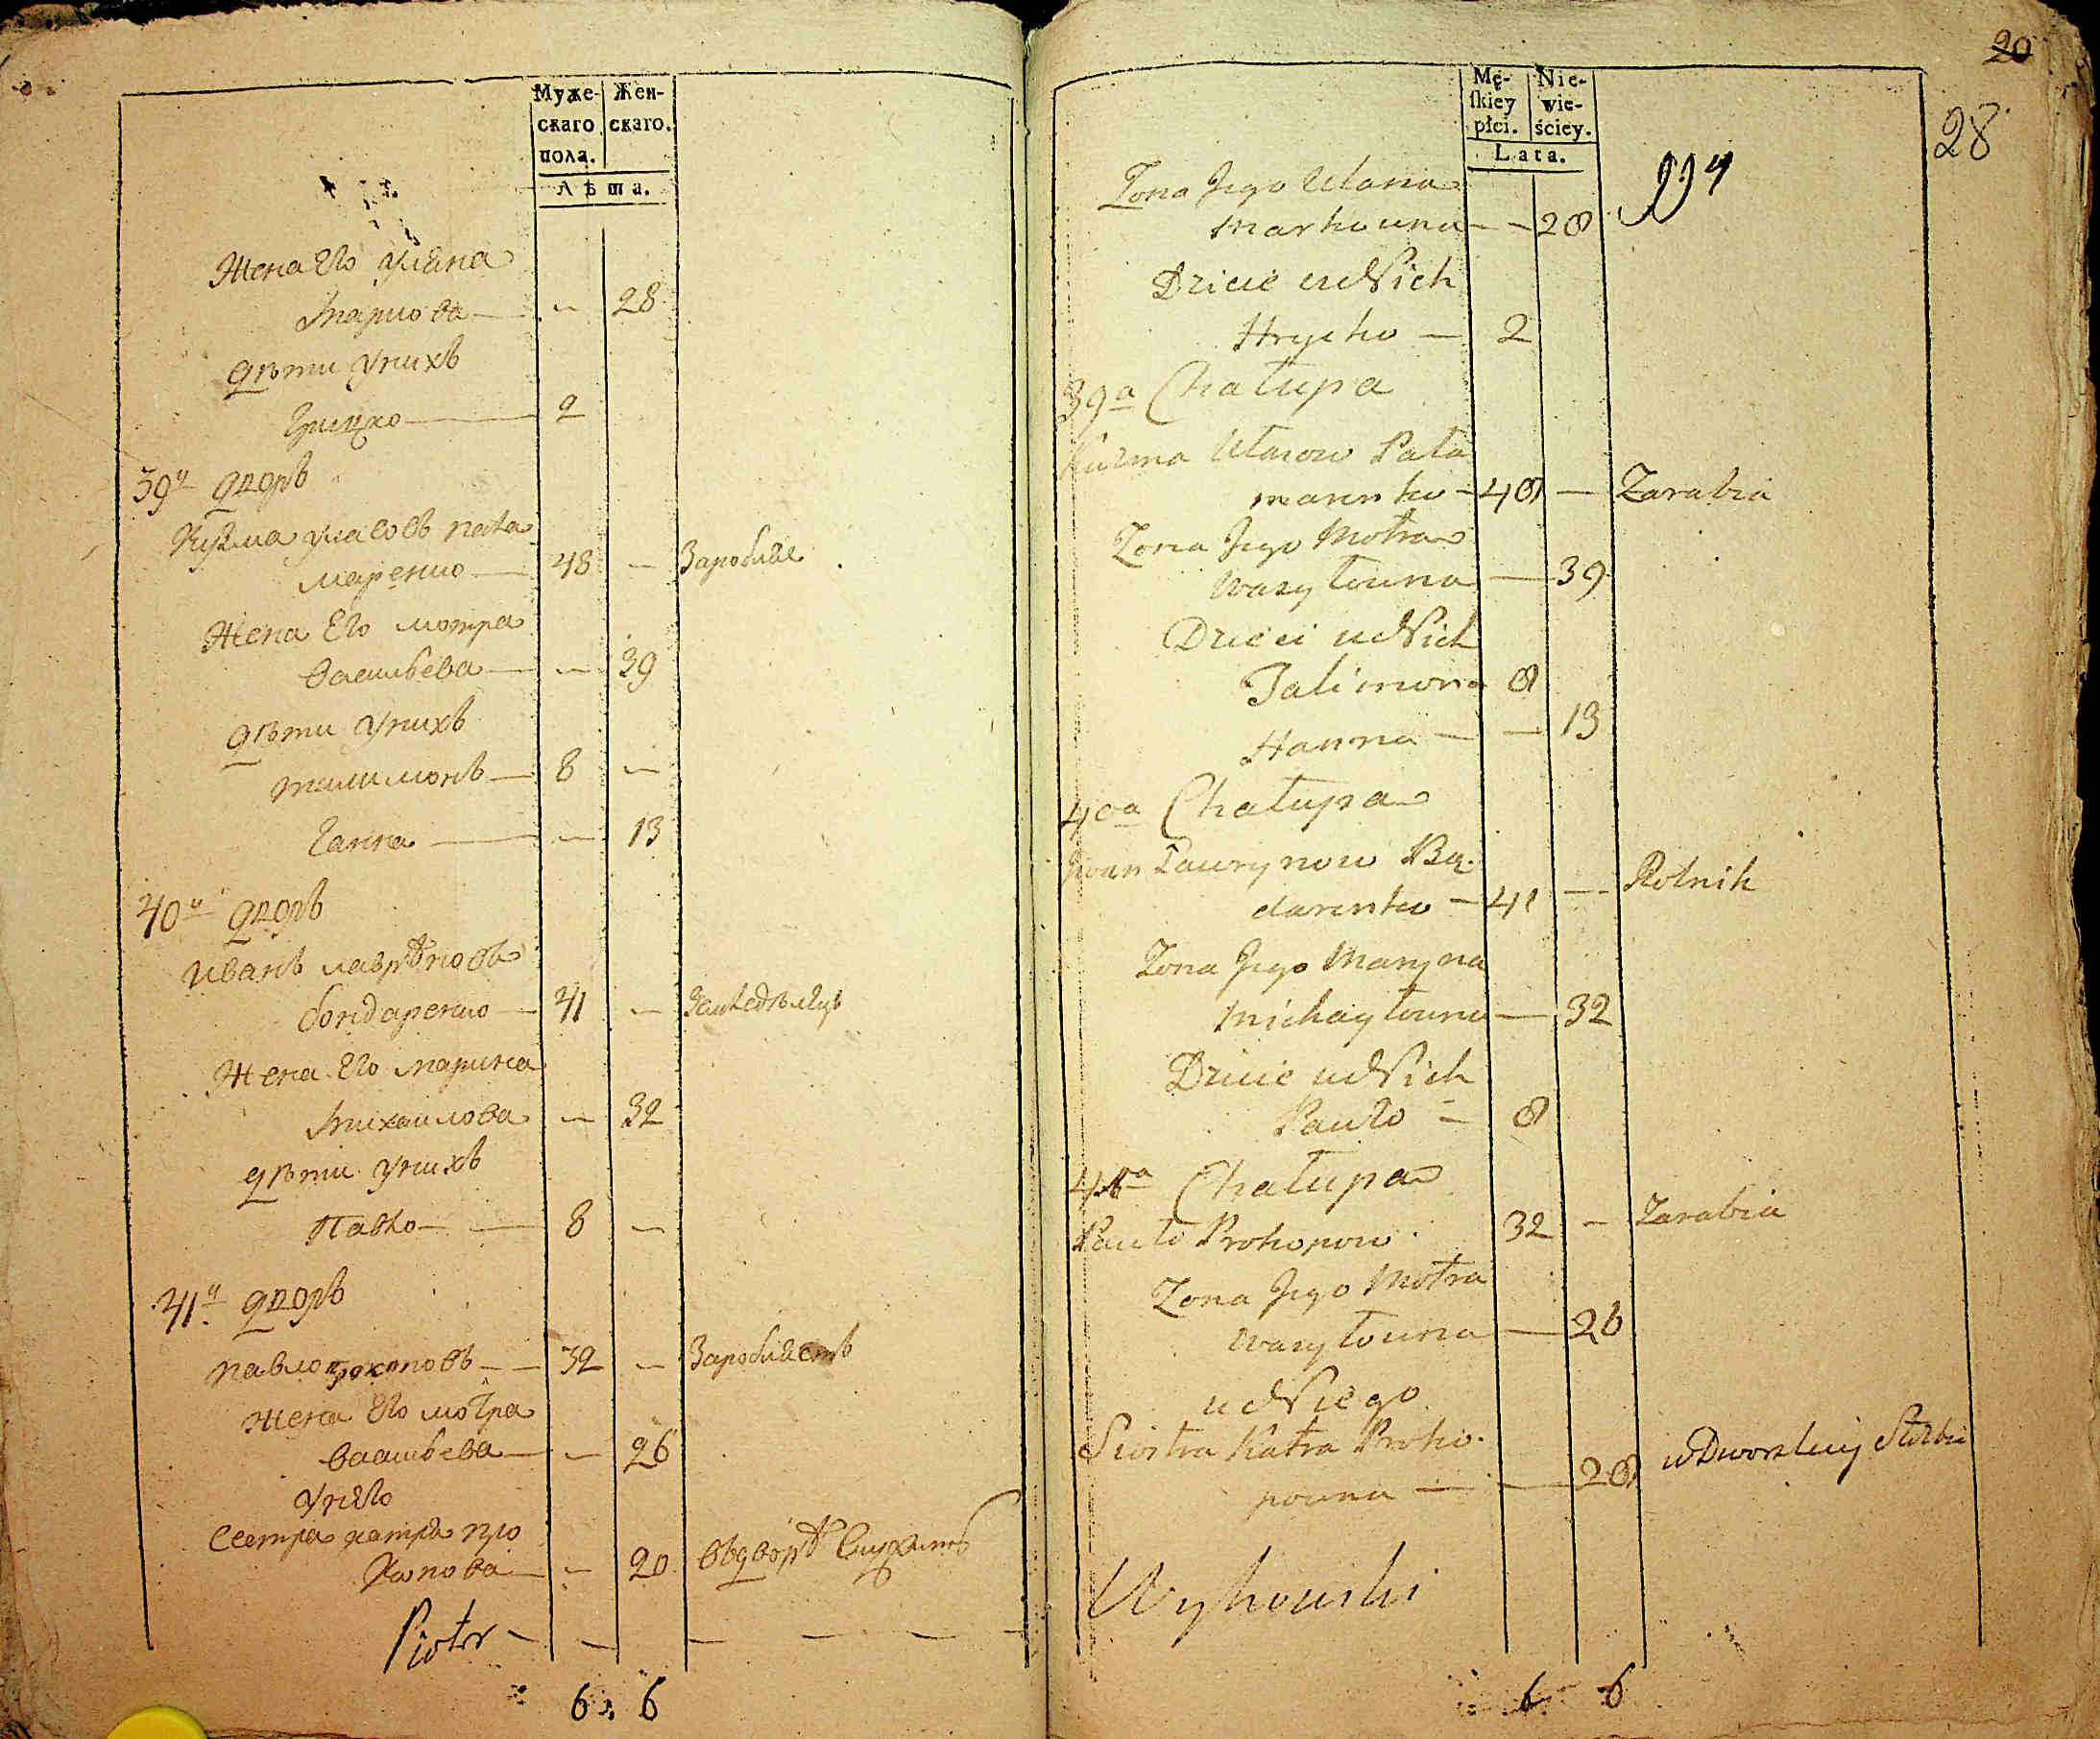 Муже-
скаго
пола.
Жен-
скаго.
Лѣта.
Жена Его Уляна
Маркова — — 28
дѣти у нихъ
Грицко — 2
39й дворъ
Кузма Уласовъ Пала
маренко — 48 — Заробляе
Жена Его мотра
Васильева — — 39
дѣти у нихъ
тилимонъ — 8 —
Ганна — — 13
40й дворъ
Иванъ лаврѣновъ
бондаренко — 41 — Земледѣлецъ
Жена Его марина
Михаилова — — 32
дѣти у нихъ
Павло — 8 —
41й дворъ
Павло прокоповъ — 32 — Заробляетъ
жена Его мотра
Васильева — — 26
у него
Сестра катра про
копова — — 20 въ дворѣ служитъ
Piotr — — — — — —
6 6
20
28
Mę-
skiey
płci.
Nie-
wie-
ściey.
Lata.
Żona Jego Ulana
Markowna — — 28
Dziecie u Nich
Hrycko — 2
39a Chałupa
Kuzma Ułasow Pała
marenko — 48 — Zarabia
Żona Jego Motra
Wasyłowna — 39
Dzieci u Nich
Talimon 8
Hanna — — 13
40a Chałupa
Jwan Ławrynow Bą
darenko — 41 — Rolnik
Żona Jego Maryna
Michayłowna — 32
Dziecie u Nich
Pawło — 8
41a Chałupa
Pawło Prokopow 32 — Zarabia
Żona Jego Motra
Wasyłowna — 26
u Niego
Siostra Katra Proko-
powna — — 20 w Dworskiey Służbie
Wyhowski
6 6